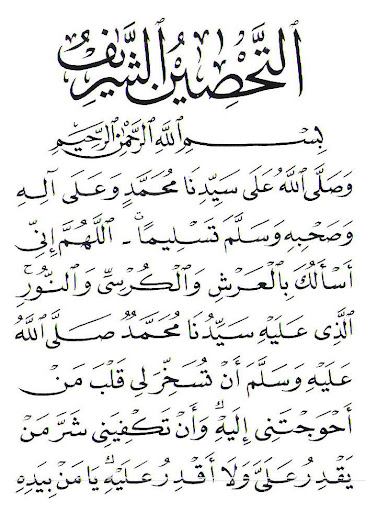 التَّحْصِينُ الشَّرِيفُ
بِسْمِ اللَّهِ الرَّحْمَٰنِ الرَّحِيمِ
وَصَلَّى اللَّهُ عَلَى سَيِّدِنَا مُحَمَّدٍ وَعَلَى آلِهِ
وَصَحْبِهِ وَسَلَّمَ تَسْلِيمًا ـ اللَّهُمَّ إِنِّي
أَسْأَلُكَ بِالْعَرْشِ وَالْكُرْسِيِّ وَالنُّورِ
الَّذِي عَلَيْهِ سَيِّدُنَا مُحَمَّدٌ صَلَّى اللَّهُ
عَلَيْهِ وَسَلَّمَ أَنْ تُسَخِّرَ لِي قَلْبَ مَنْ
أَحْوَجْتَنِي إِلَيْهِ وَأَنْ تَكْفِيَنِي شَرَّ مَنْ
يَقْدِرُ عَلَيَّ وَلَا أَقْدِرُ عَلَيْهِ يَا مَنْ بِيَدِهِ